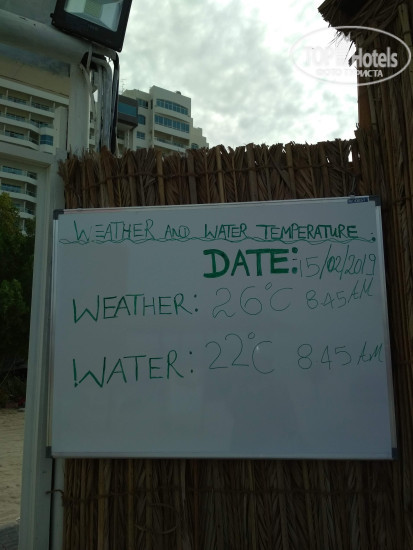 TopHotels
ФОТО ТУРИСТА
WEATHER AND WATER TEMPERATURE:
DATE: 15/02/2019
WEATHER: 26°C 845 AM
!WATER: 22°C 845 AM